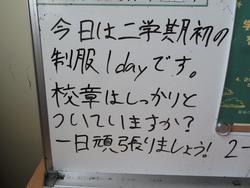 今日は二学期初の
制服1dayです。
校章はしっかりと
ついていますか?
一日頑張りましょう!
2-